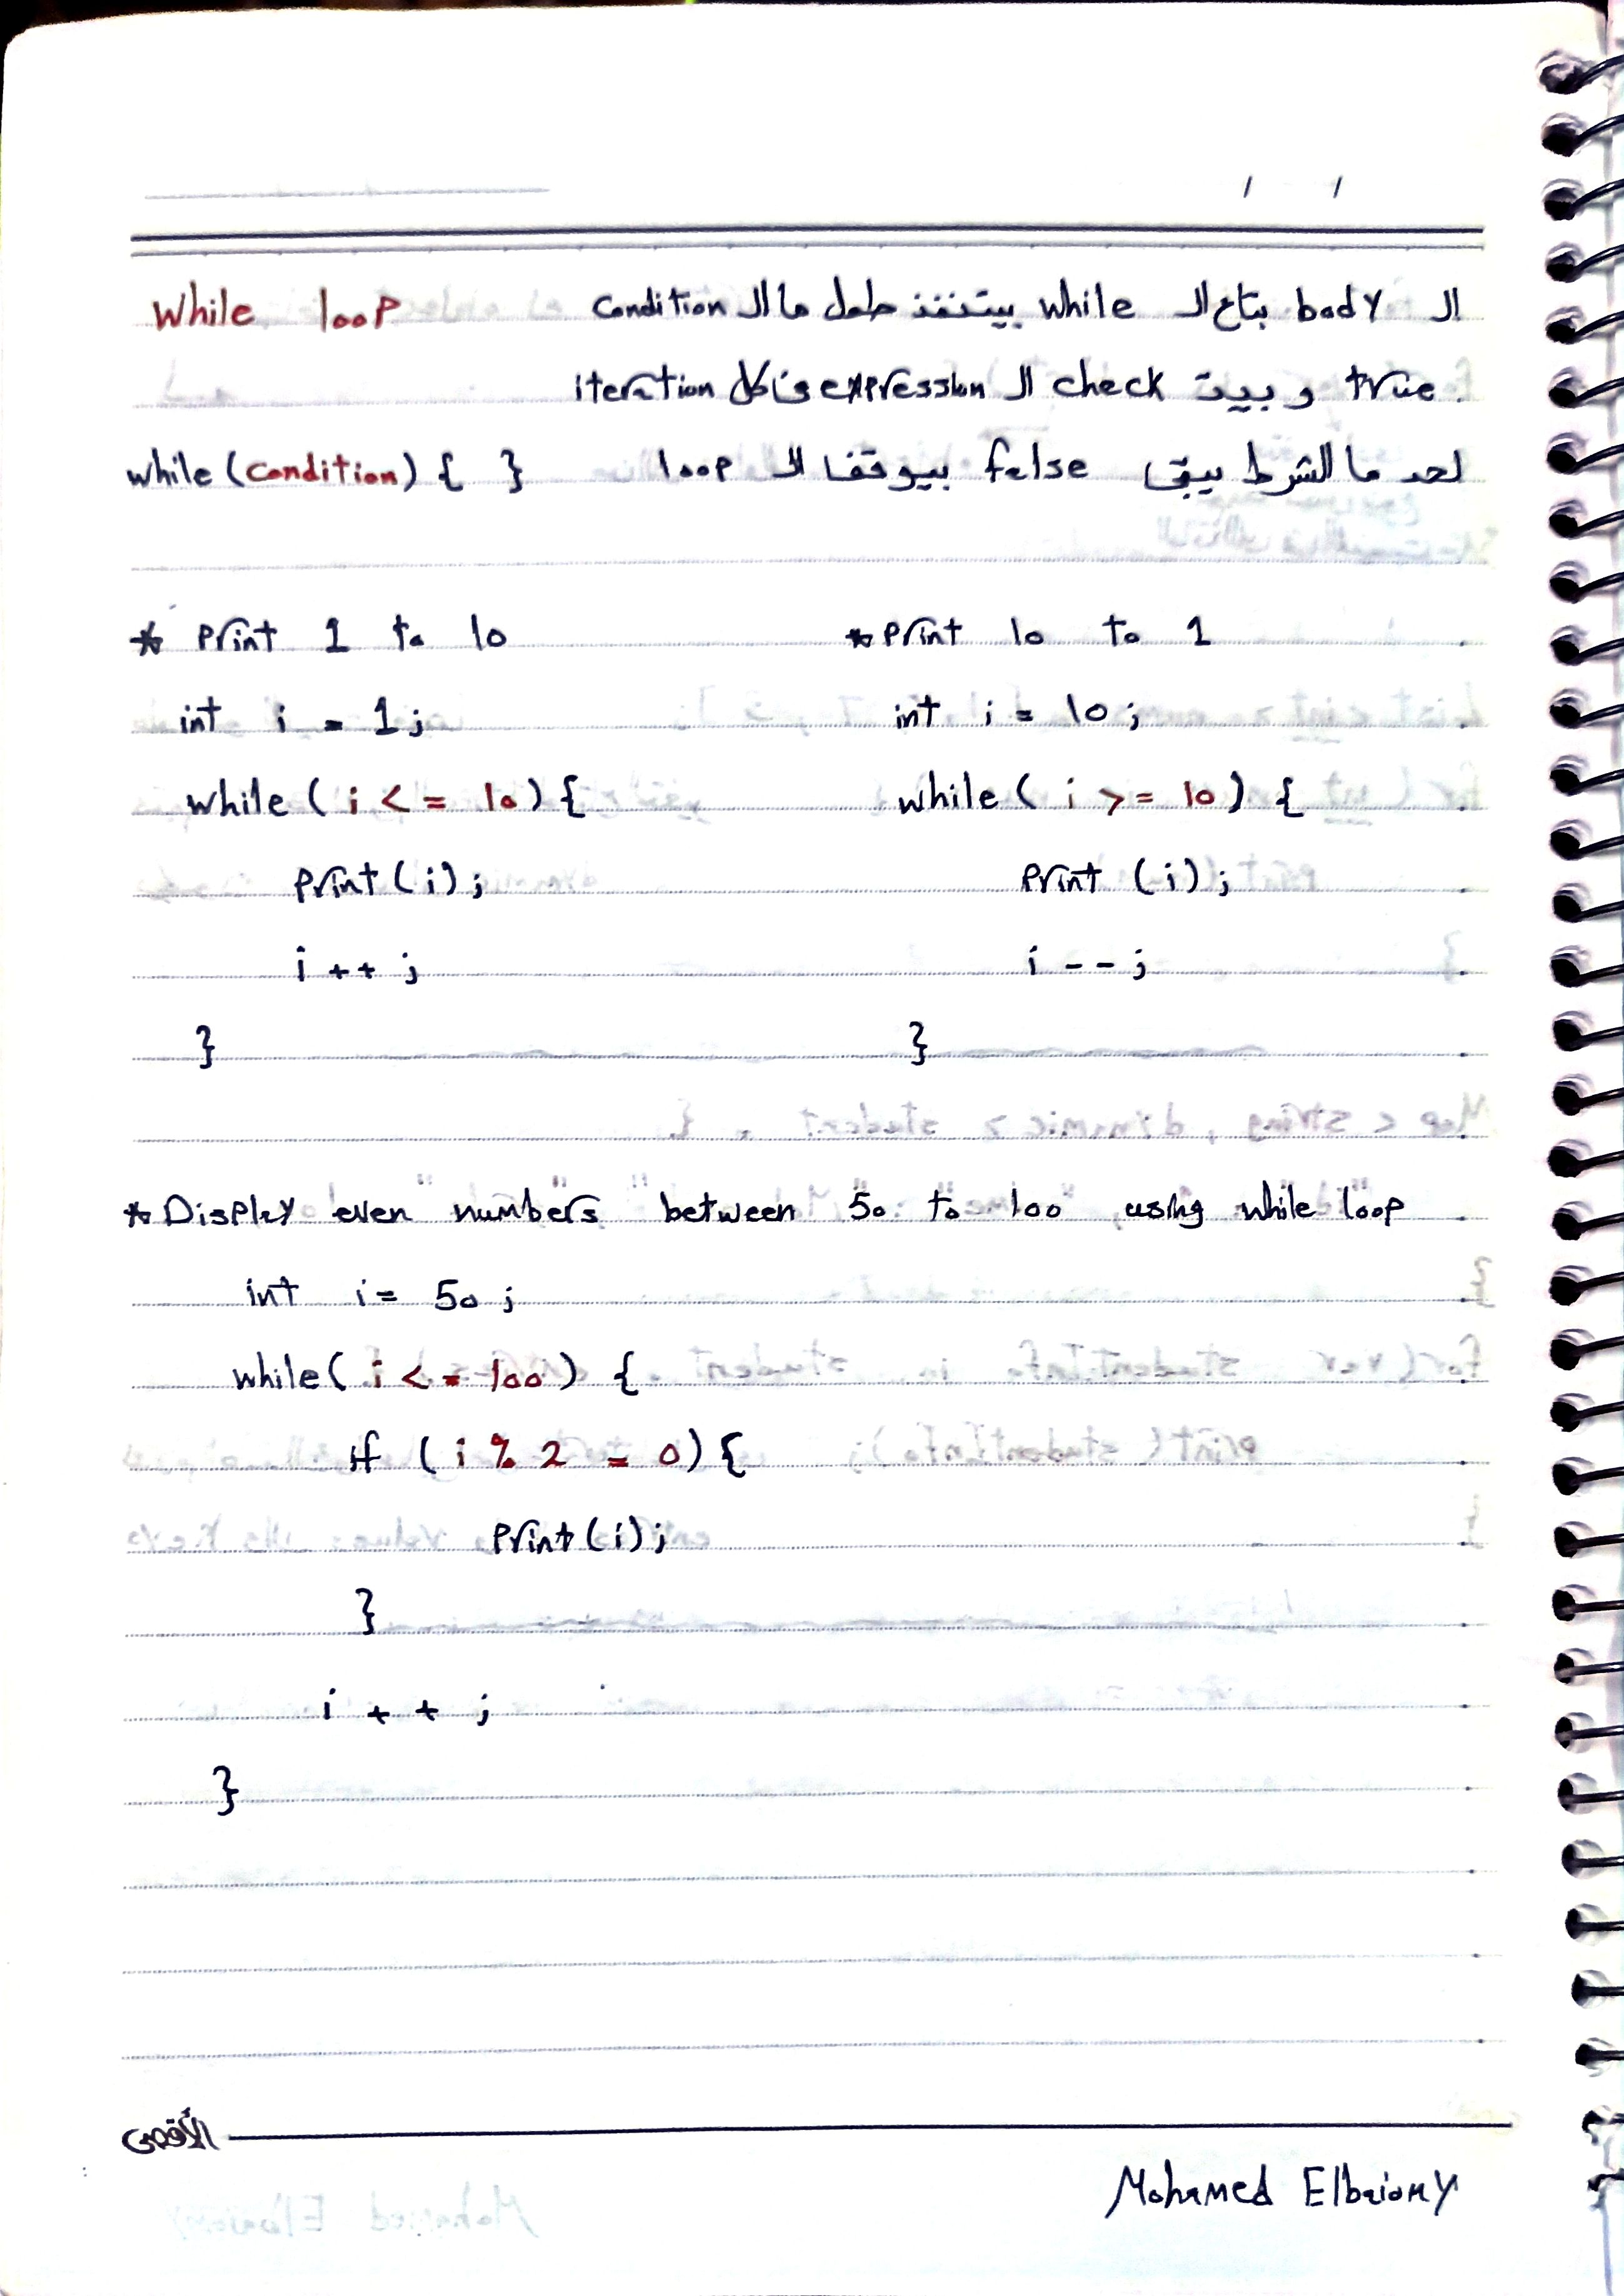 While loop
ال body بتاع ال while بيتنفذ طول ما ال condition
true و بيت check ال expression في كل iteration
while (condition) { }
لحد ما الشرط يبقى false بيوقف ال loop
* Print 1 to 10
int i = 1;
while ( i <= 10) {
print (i);
i ++ ;
}
* Print 10 to 1
int i = 10 ;
while ( i >= 10 ) {
Print (i) ;
i -- ;
}
* Display even numbers between 50 to 100 using while loop
int i = 50 ;
while ( i <= 100 ) {
if ( i % 2 = 0) {
print (i) ;
}
i + + ;
}
الأقصى
Mohamed Elbaiomy